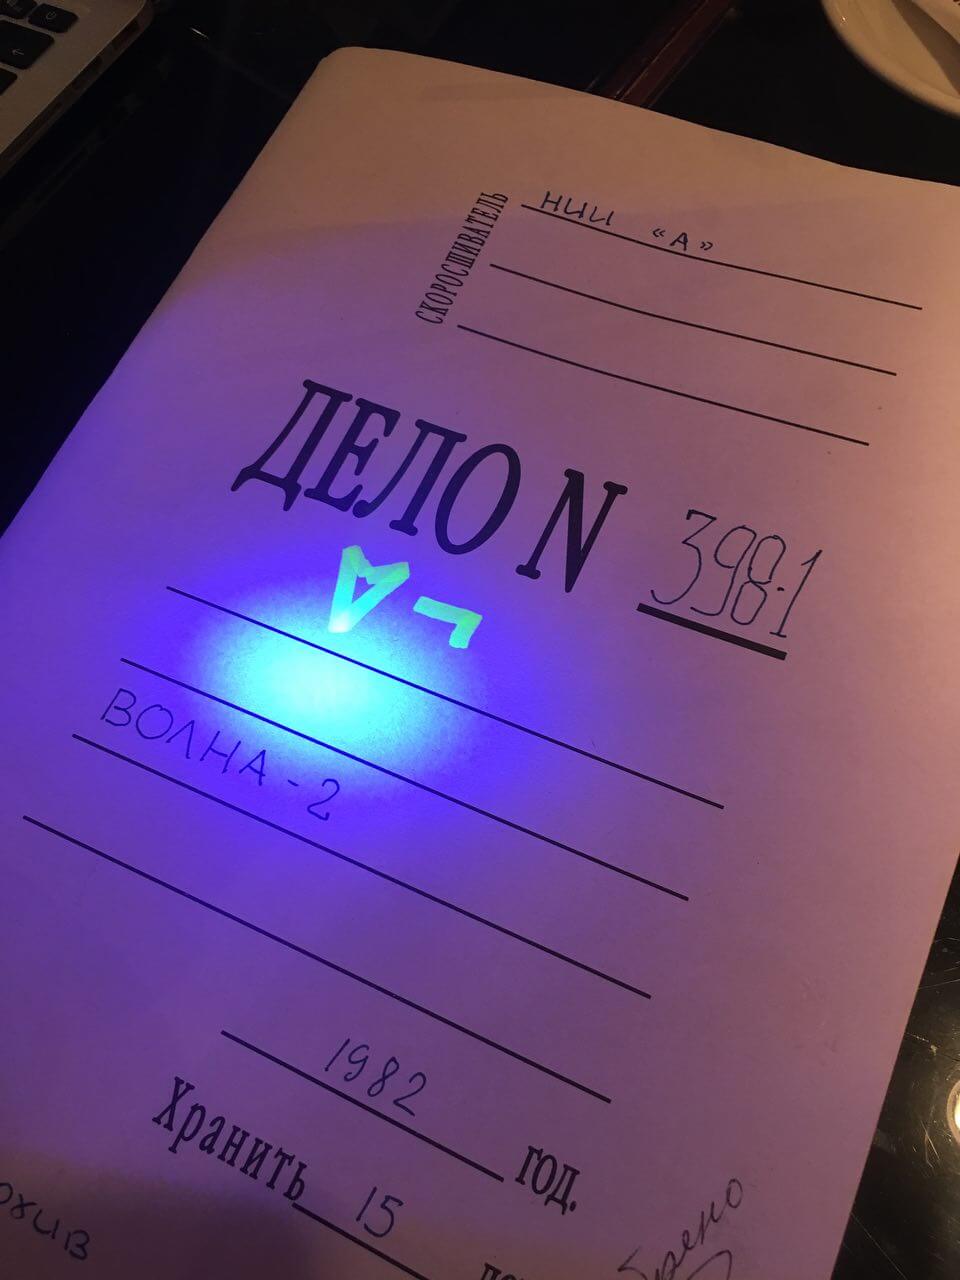 СКОРОСШИВАТЕЛЬ
НИИ «А»
ДЕЛО N 398·1
ВОЛНА - 2
1982 год.
Хранить 15